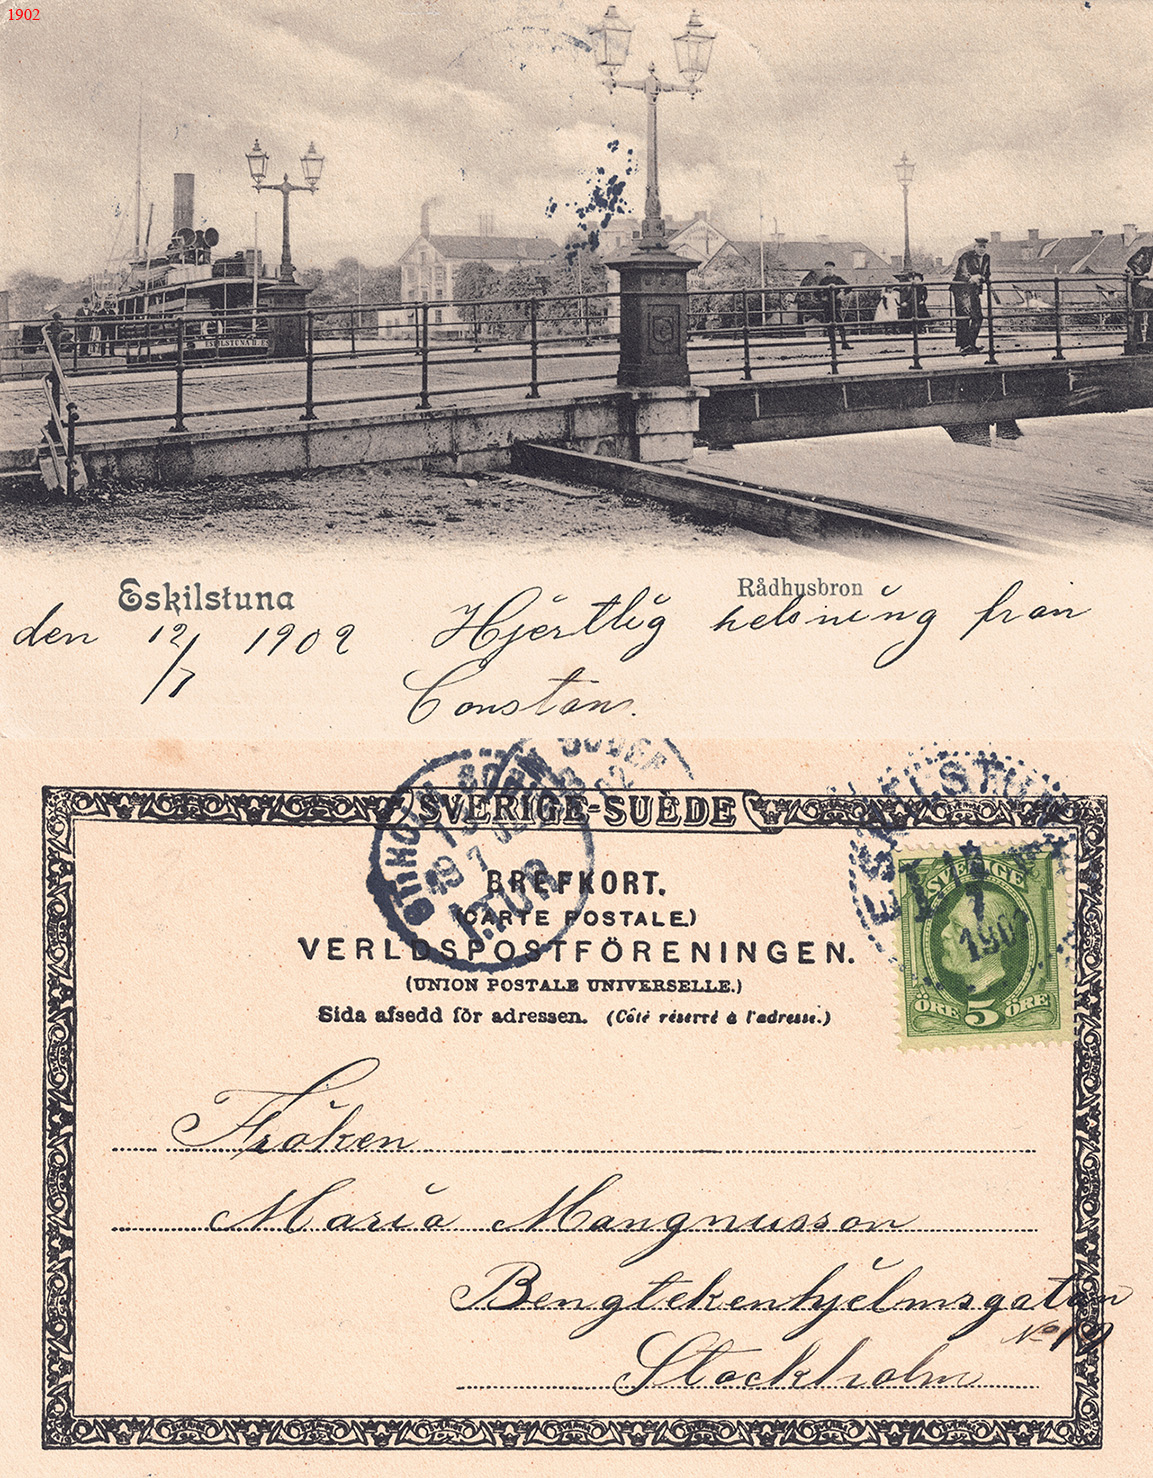 1902
ESKILSTUNA II. ES
Eskilstuna
Rådhusbron
den 12/7 1902 Hjertlig helsning från
Constan.
SVERIGE-SUÈDE
BREFKORT.
(CARTE POSTALE)
VERLDSPOSTFÖRENINGEN.
(UNION POSTALE UNIVERSELLE.)
Sida afsedd för adressen. (Côté réservé à l'adresse.)
STHOLM
19 7
1.TUR
SÖDER
ESKILSTUNA
1902
SVERIGE
ÖRE 5 ÖRE
Fröken
Maria Mangnusson
Bengtekenhjelmsgatan
No 19
Stockholm